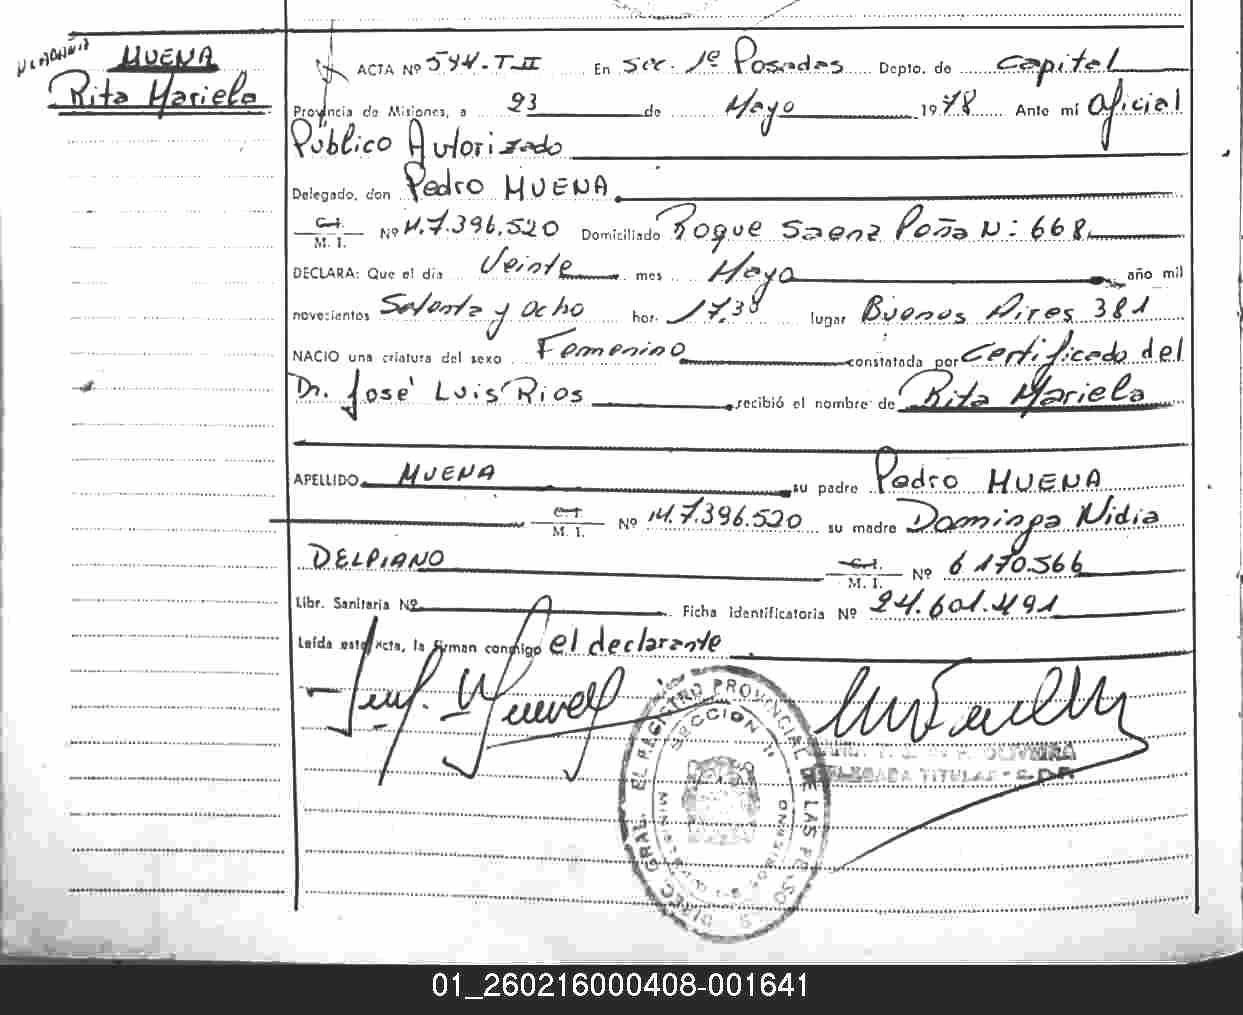 MUENA
Rita Mariela
ACTA Nº 544-T-II En Sec. 1º Posadas Depto. de Capital
Provincia de Misiones, a 23 de Mayo 1978 Ante mí Oficial
Público Autorizado
Delegado, don Pedro MUENA
C.I.
M. I. Nº M.7.396.520 Domiciliado Roque Saenz Peña N: 668
DECLARA: Que el día Veinte mes Mayo año mil
novecientos Setenta y Ocho hor. 17,30 lugar Buenos Aires 381
NACIO una criatura del sexo Femenino constatada por Certificado del
Dr. José Luis Rios recibió el nombre de Rita Mariela
APELLIDO MUENA su padre Pedro MUENA
C.I.
M. I. Nº M.7.396.520 su madre Dominga Nidia
DELPIANO C.I.
M. I. Nº 6170.566
Libr. Sanitaria Nº Ficha Identificatoria Nº 24.601.491
Leída este Acta, la firman conmigo el declarante
DIREC. GRAL. EL REGISTRO PROVINCIAL DE LAS PERSO
SECCION
OLIVEIRA
DELEGADA TITULAR
01_260216000408-001641